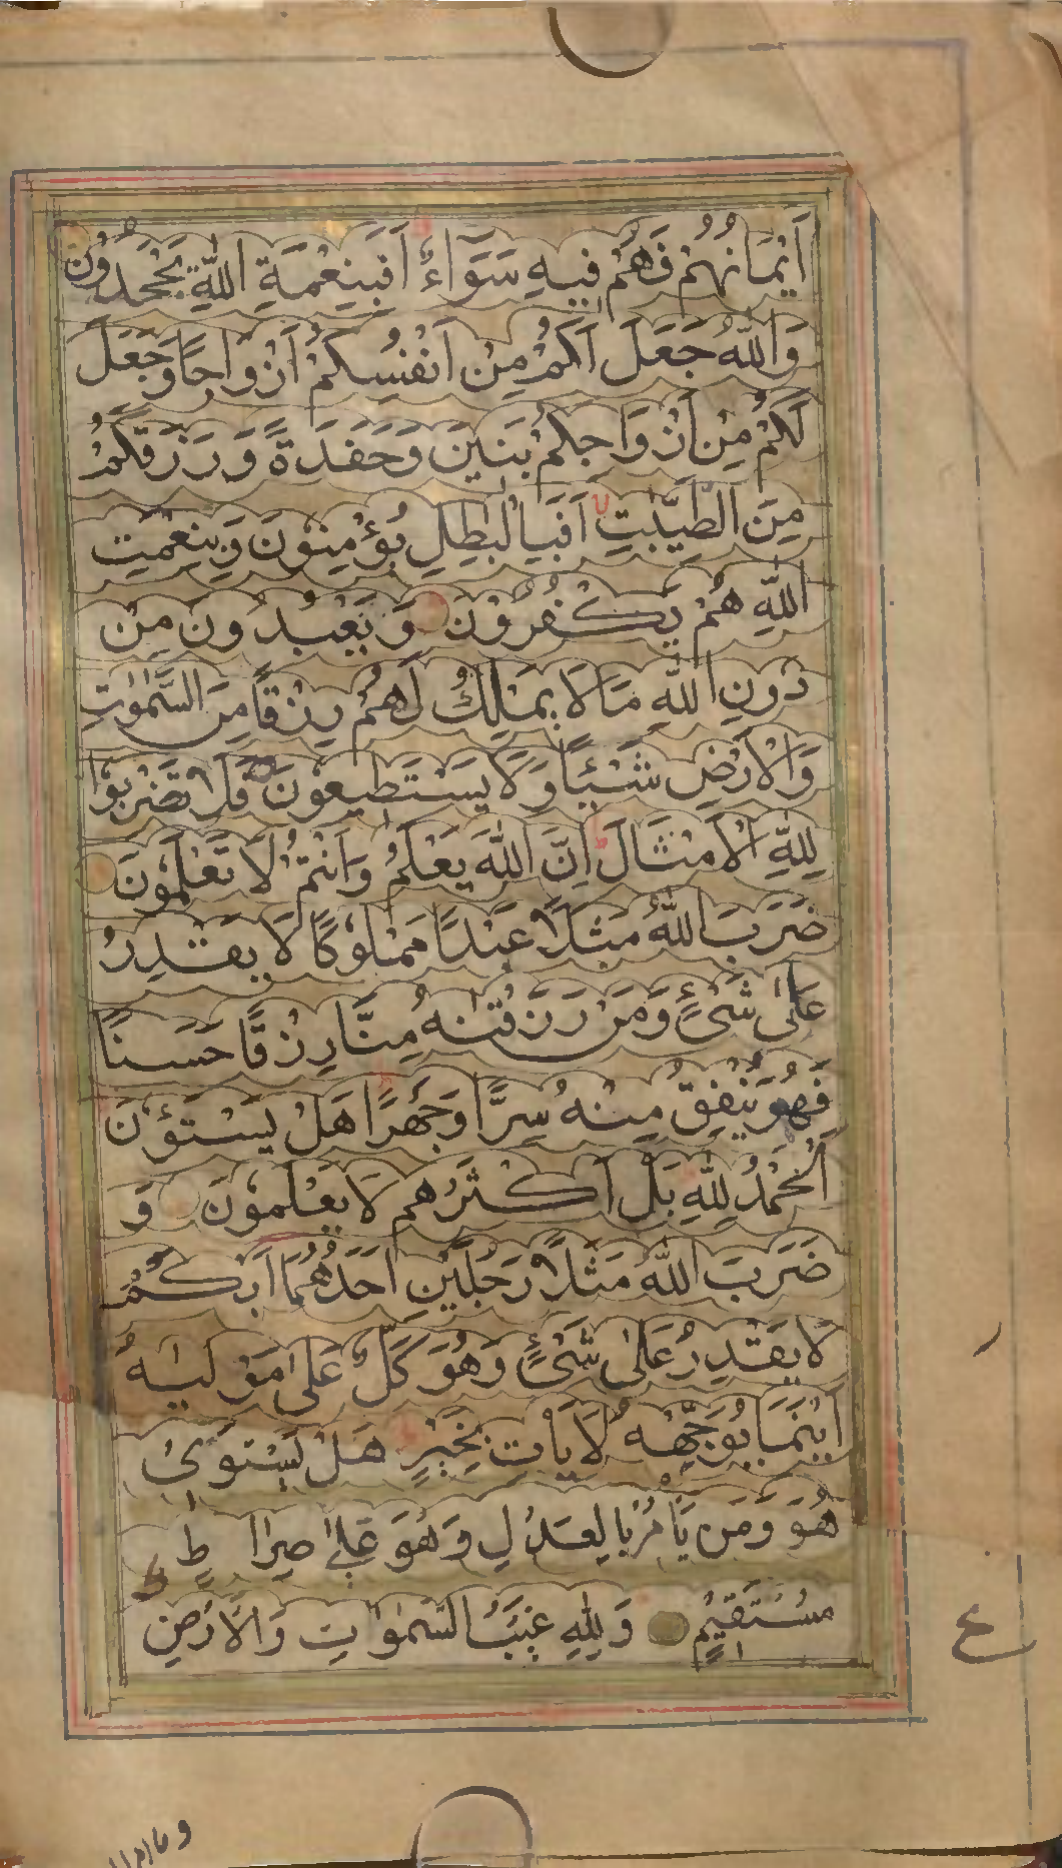 اَيْمَانُهُمْ فَهُمْ فِيهِ سَوَآءٌ اَفَبِنِعْمَةِ اللّٰهِ يَجْحَدُوْنَ
وَاللّٰهُ جَعَلَ لَكُمْ مِنْ اَنْفُسِكُمْ اَزْوَاجًا وَجَعَلَ
لَكُمْ مِنْ اَزْوَاجِكُمْ بَنِيْنَ وَحَفَدَةً وَرَزَقَكُمْ
مِنَ الطَّيِّبٰتِ اَفَبِالْبٰطِلِ يُؤْمِنُوْنَ وَبِنِعْمَتِ
اللّٰهِ هُمْ يَكْفُرُوْنَ وَيَعْبُدُوْنَ مِنْ
دُوْنِ اللّٰهِ مَا لَا يَمْلِكُ لَهُمْ رِزْقًا مِنَ السَّمٰوٰتِ
وَالْاَرْضِ شَيْئًا وَلَا يَسْتَطِيْعُوْنَ فَلَا تَضْرِبُوْا
لِلّٰهِ الْاَمْثَالَ اِنَّ اللّٰهَ يَعْلَمُ وَاَنْتُمْ لَا تَعْلَمُوْنَ
ضَرَبَ اللّٰهُ مَثَلًا عَبْدًا مَمْلُوْكًا لَا يَقْدِرُ
عَلٰى شَىْءٍ وَمَنْ رَزَقْنٰهُ مِنَّا رِزْقًا حَسَنًا
فَهُوَ يُنْفِقُ مِنْهُ سِرًّا وَجَهْرًا هَلْ يَسْتَوٗنَ
اَلْحَمْدُ لِلّٰهِ بَلْ اَكْثَرُهُمْ لَا يَعْلَمُوْنَ وَ
ضَرَبَ اللّٰهُ مَثَلًا رَجُلَيْنِ اَحَدُهُمَا اَبْكَمُ
لَا يَقْدِرُ عَلٰى شَىْءٍ وَهُوَ كَلٌّ عَلٰى مَوْلٰيهُ
اَيْنَمَا يُوَجِّهْهُ لَا يَاْتِ بِخَيْرٍ هَلْ يَسْتَوِىْ
هُوَ وَمَنْ يَاْمُرُ بِالْعَدْلِ وَهُوَ عَلٰى صِرَاطٍ
مُسْتَقِيْمٍ وَلِلّٰهِ غَيْبُ السَّمٰوٰتِ وَالْاَرْضِ
ع